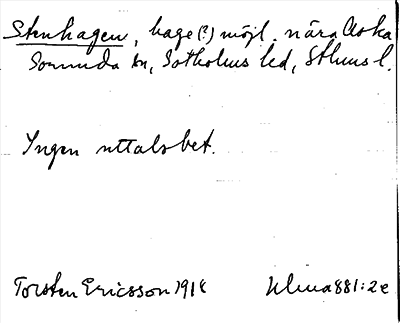 Stenhagen, hage (?) möjl. nära Aska
Sorunda sn, Sotholms hd, Sthlms l.
Ingen uttalsbet.
Torsten Ericsson 1918 Ulma 881:2e